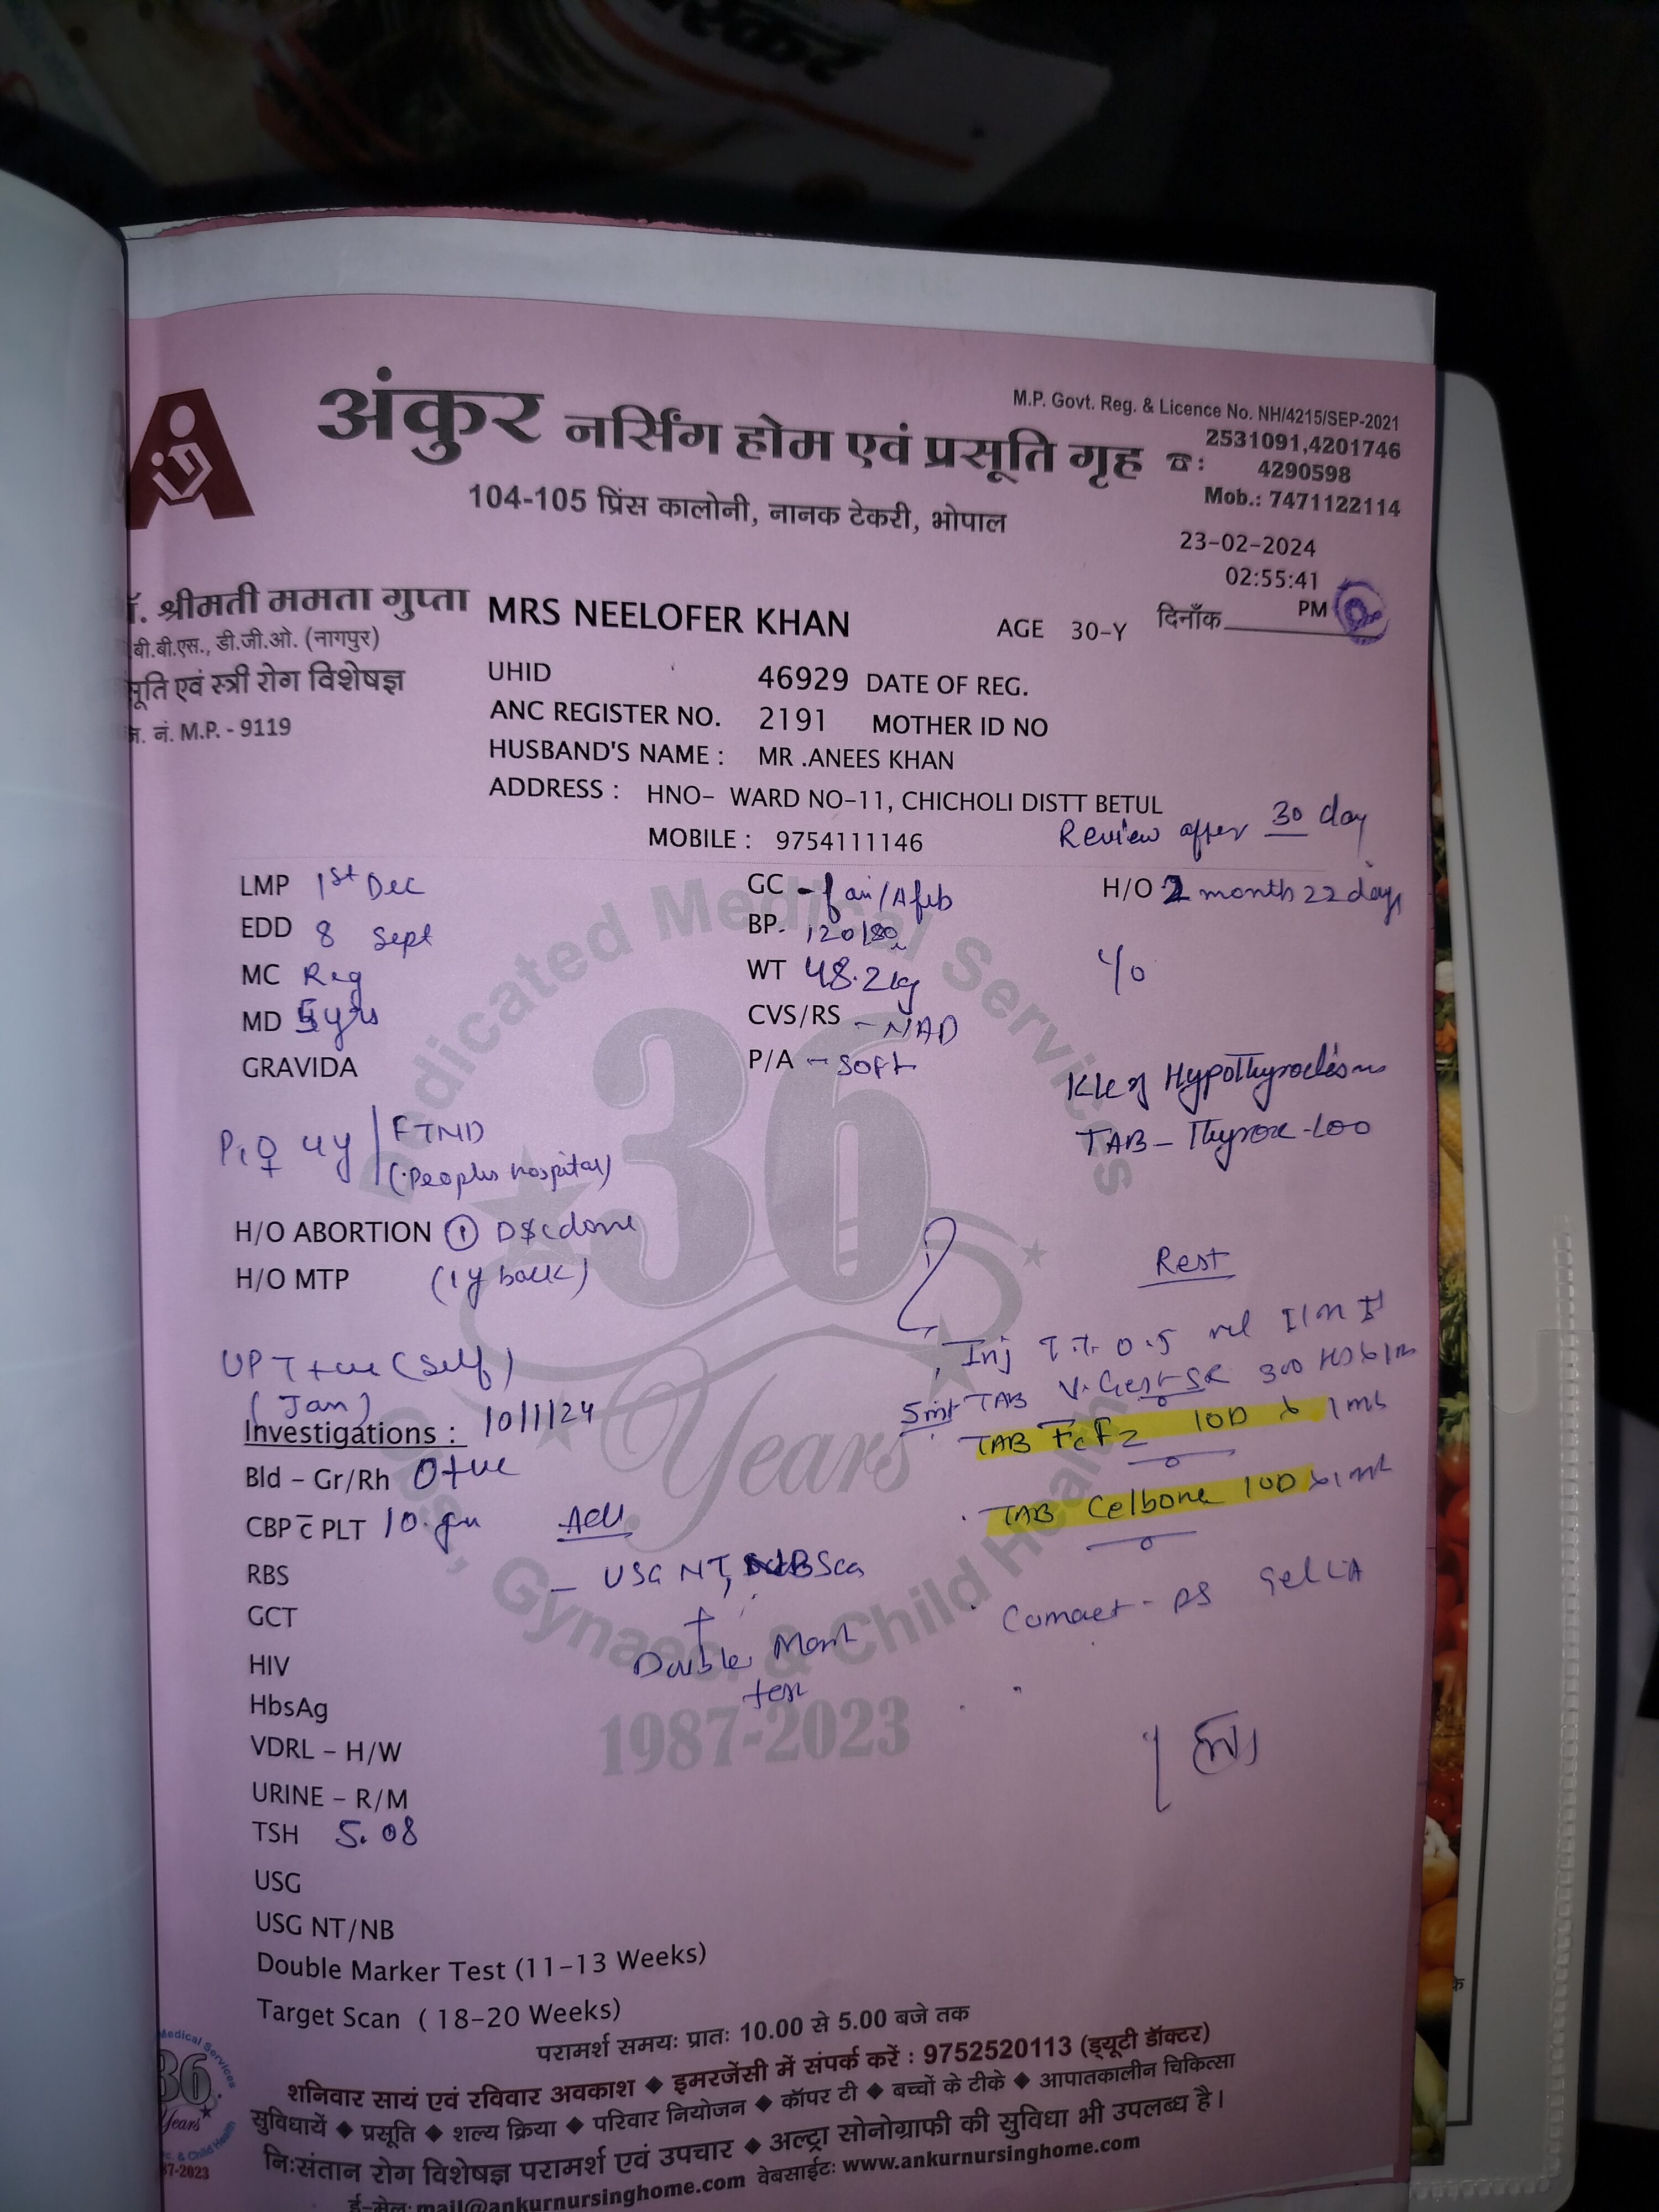 स्कर
M.P. Govt. Reg. & Licence No. NH/4215/SEP-2021
अंकुर नर्सिंग होम एवं प्रसूति गृह ☎: 2531091,4201746
4290598
Mob.: 7471122114
104-105 प्रिंस कालोनी, नानक टेकरी, भोपाल
23-02-2024
02:55:41
PM
दिनाँक
श्रीमती ममता गुप्ता
बी.बी.एस., डी.जी.ओ. (नागपुर)
सूति एवं स्त्री रोग विशेषज्ञ
नं. M.P. - 9119
MRS NEELOFER KHAN AGE 30-Y
UHID 46929 DATE OF REG.
ANC REGISTER NO. 2191 MOTHER ID NO
HUSBAND'S NAME : MR .ANEES KHAN
ADDRESS : HNO- WARD NO-11, CHICHOLI DISTT BETUL
MOBILE : 9754111146
Review after 30 day
LMP 1st Dec
EDD 8 Sept
MC Reg
MD 5yrs
GRAVIDA
GC - fair/Afeb
BP. 120/80
WT 48.2kg
CVS/RS - NAD
P/A - soft
H/O 2 month 22 days
K/c of Hypothyroidism
TAB - Thyrox-100
P1 ♀ 4y FTND
(Peoples hospital)
H/O ABORTION ① D&C done
H/O MTP (1y back)
UPT +ve (self)
(Jan)
Investigations : 10/1/24
Bld - Gr/Rh O+ve
CBP c̄ PLT 10. gm
RBS
GCT
HIV
HbsAg
VDRL - H/W
URINE - R/M
TSH 5.08
USG
USG NT/NB
Double Marker Test (11-13 Weeks)
Target Scan ( 18-20 Weeks)
Adv
- USG NT, NB Scan
+
Double Mark
test
Rest
Inj T.T. 0.5 ml I/M
TAB V-Gest SR 300 HS x 1m
TAB 10D x 1mt
TAB Celbone 10D x 1mt
Medicated Medical Services
36
Years
Obs., Gynaec. & Child Health
1987-2023
परामर्श समयः प्रातः 10.00 से 5.00 बजे तक
शनिवार सायं एवं रविवार अवकाश ◆ इमरजेंसी में संपर्क करें : 9752520113 (ड्यूटी डॉक्टर)
सुविधायें ◆ प्रसूति ◆ शल्य क्रिया ◆ परिवार नियोजन ◆ कॉपर टी ◆ बच्चों के टीके ◆ आपातकालीन चिकित्सा
निःसंतान रोग विशेषज्ञ परामर्श एवं उपचार ◆ अल्ट्रा सोनोग्राफी की सुविधा भी उपलब्ध है।
ई-मेल: mail@ankurnursinghome.com वेबसाईटः www.ankurnursinghome.com